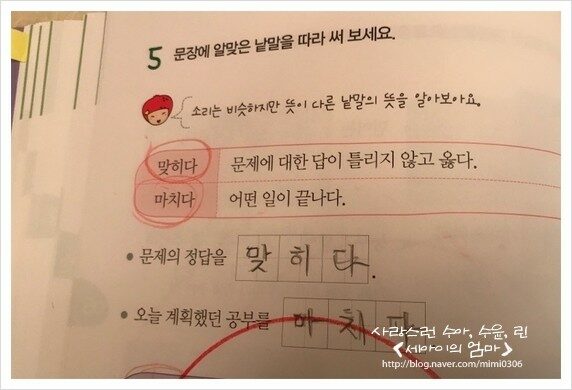 5 문장에 알맞은 낱말을 따라 써 보세요.
소리는 비슷하지만 뜻이 다른 낱말의 뜻을 알아보아요.
맞히다 문제에 대한 답이 틀리지 않고 옳다.
마치다 어떤 일이 끝나다.
• 문제의 정답을 맞히다.
• 오늘 계획했던 공부를 마치다
사랑스런 수아, 수윤, 린
<세아이의 엄마>
http://blog.naver.com/mimi0306